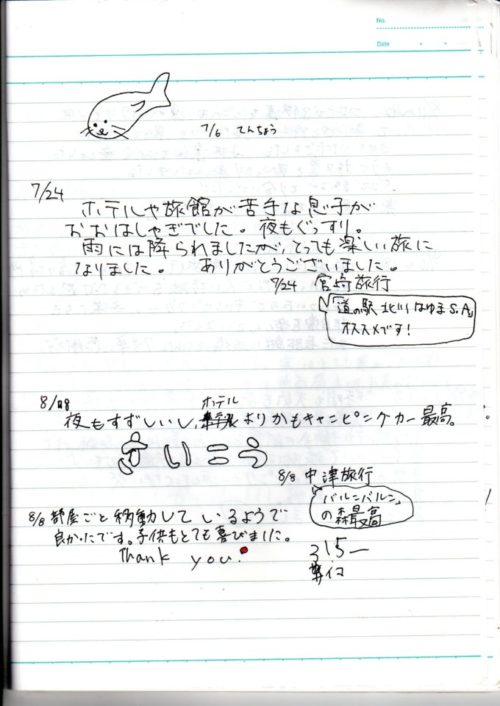 No.
Date
7/6 てんちょう
7/24
ホテルや旅館が苦手な息子が
おおはしゃぎでした。夜もぐっすり。
雨には降られましたが、とっても楽しい旅に
なりました。 ありがとうございました。
7/24 宮崎旅行
「道の駅 北川はゆまS.A」
オススメです!
8/
夜もすずしいし、ホテルよりかもキャンピングカー最高。
さいこう
8/8 中津旅行
「バルンバルン」
の森最高
8/8 部屋ごと移動しているようで
良かたです。子供もとても喜びました。
Thank you!